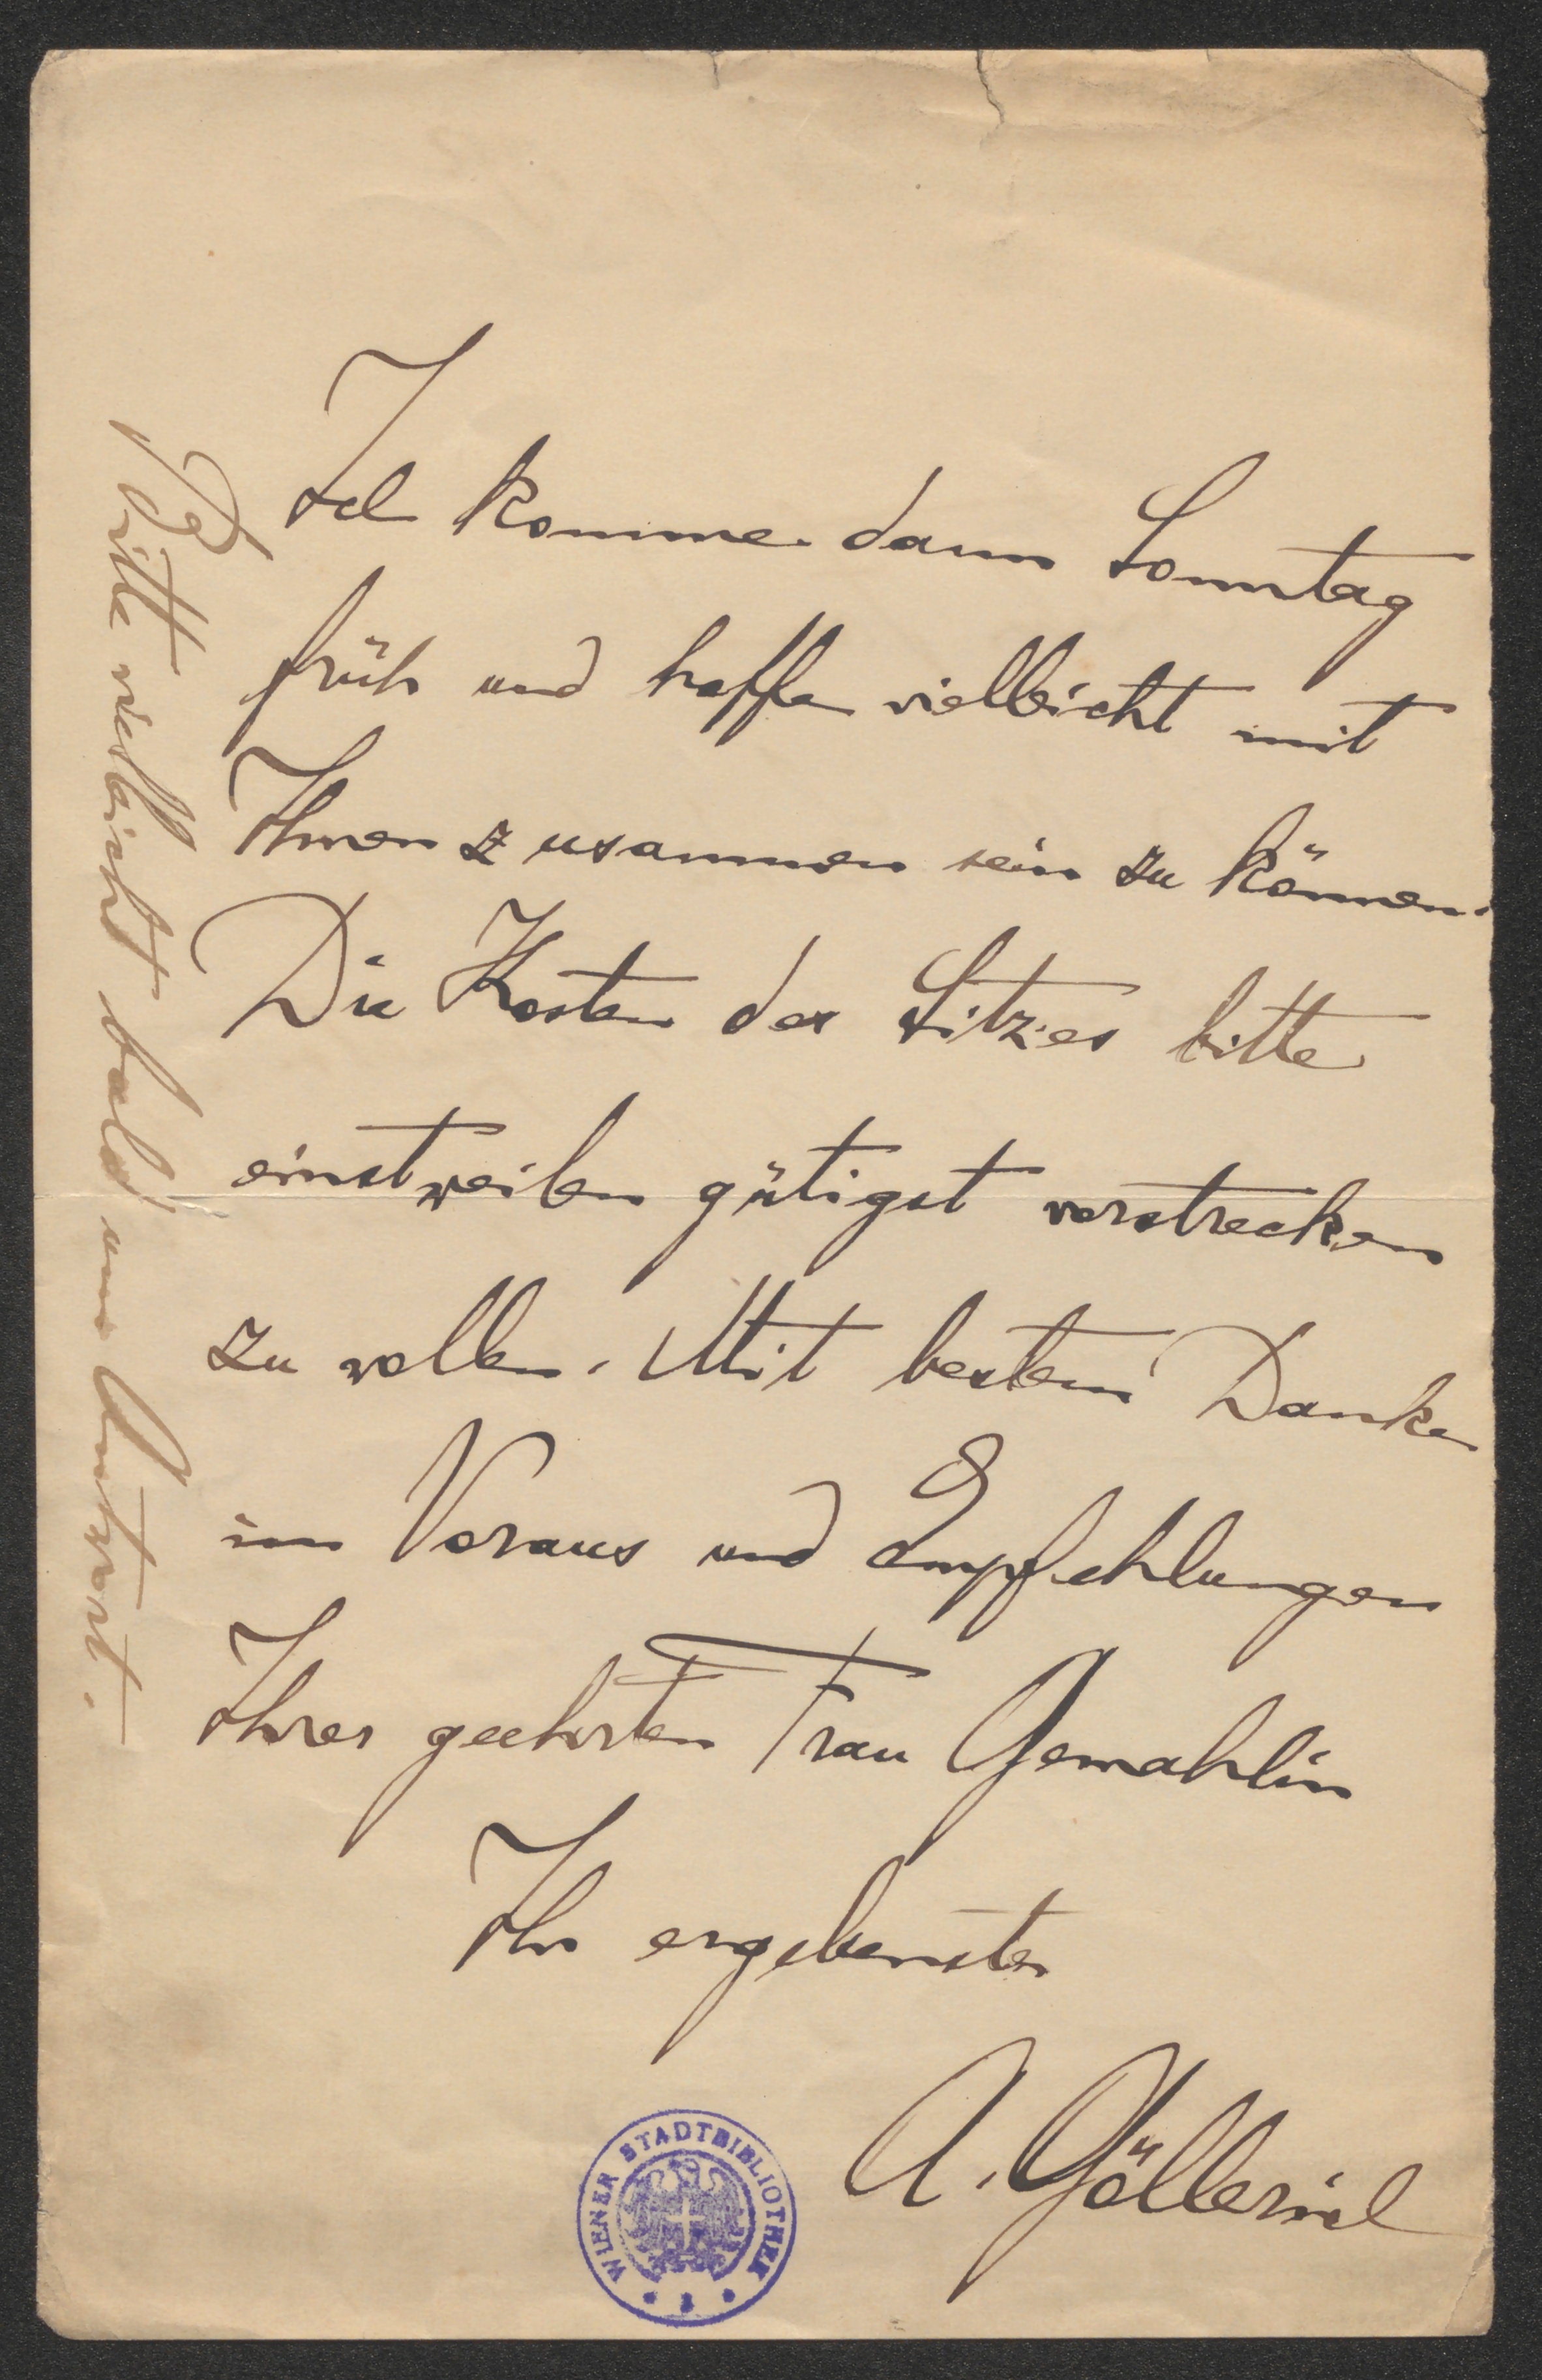 Ich komme dann Sonntag
früh und hoffe vielleicht mit
Ihnen zusammen sein zu können.
Die Kosten des Sitzes bitte
einstweilen gütigst vorstrecken
zu wollen. Mit bestem Danke
im Voraus und Empfehlungen
Ihrer geehrten Frau Gemahlin
Ihr ergebenster
A. Göllerich
Bitte vielleicht bald um Antwort.
WIENER STADTBIBLIOTHEK